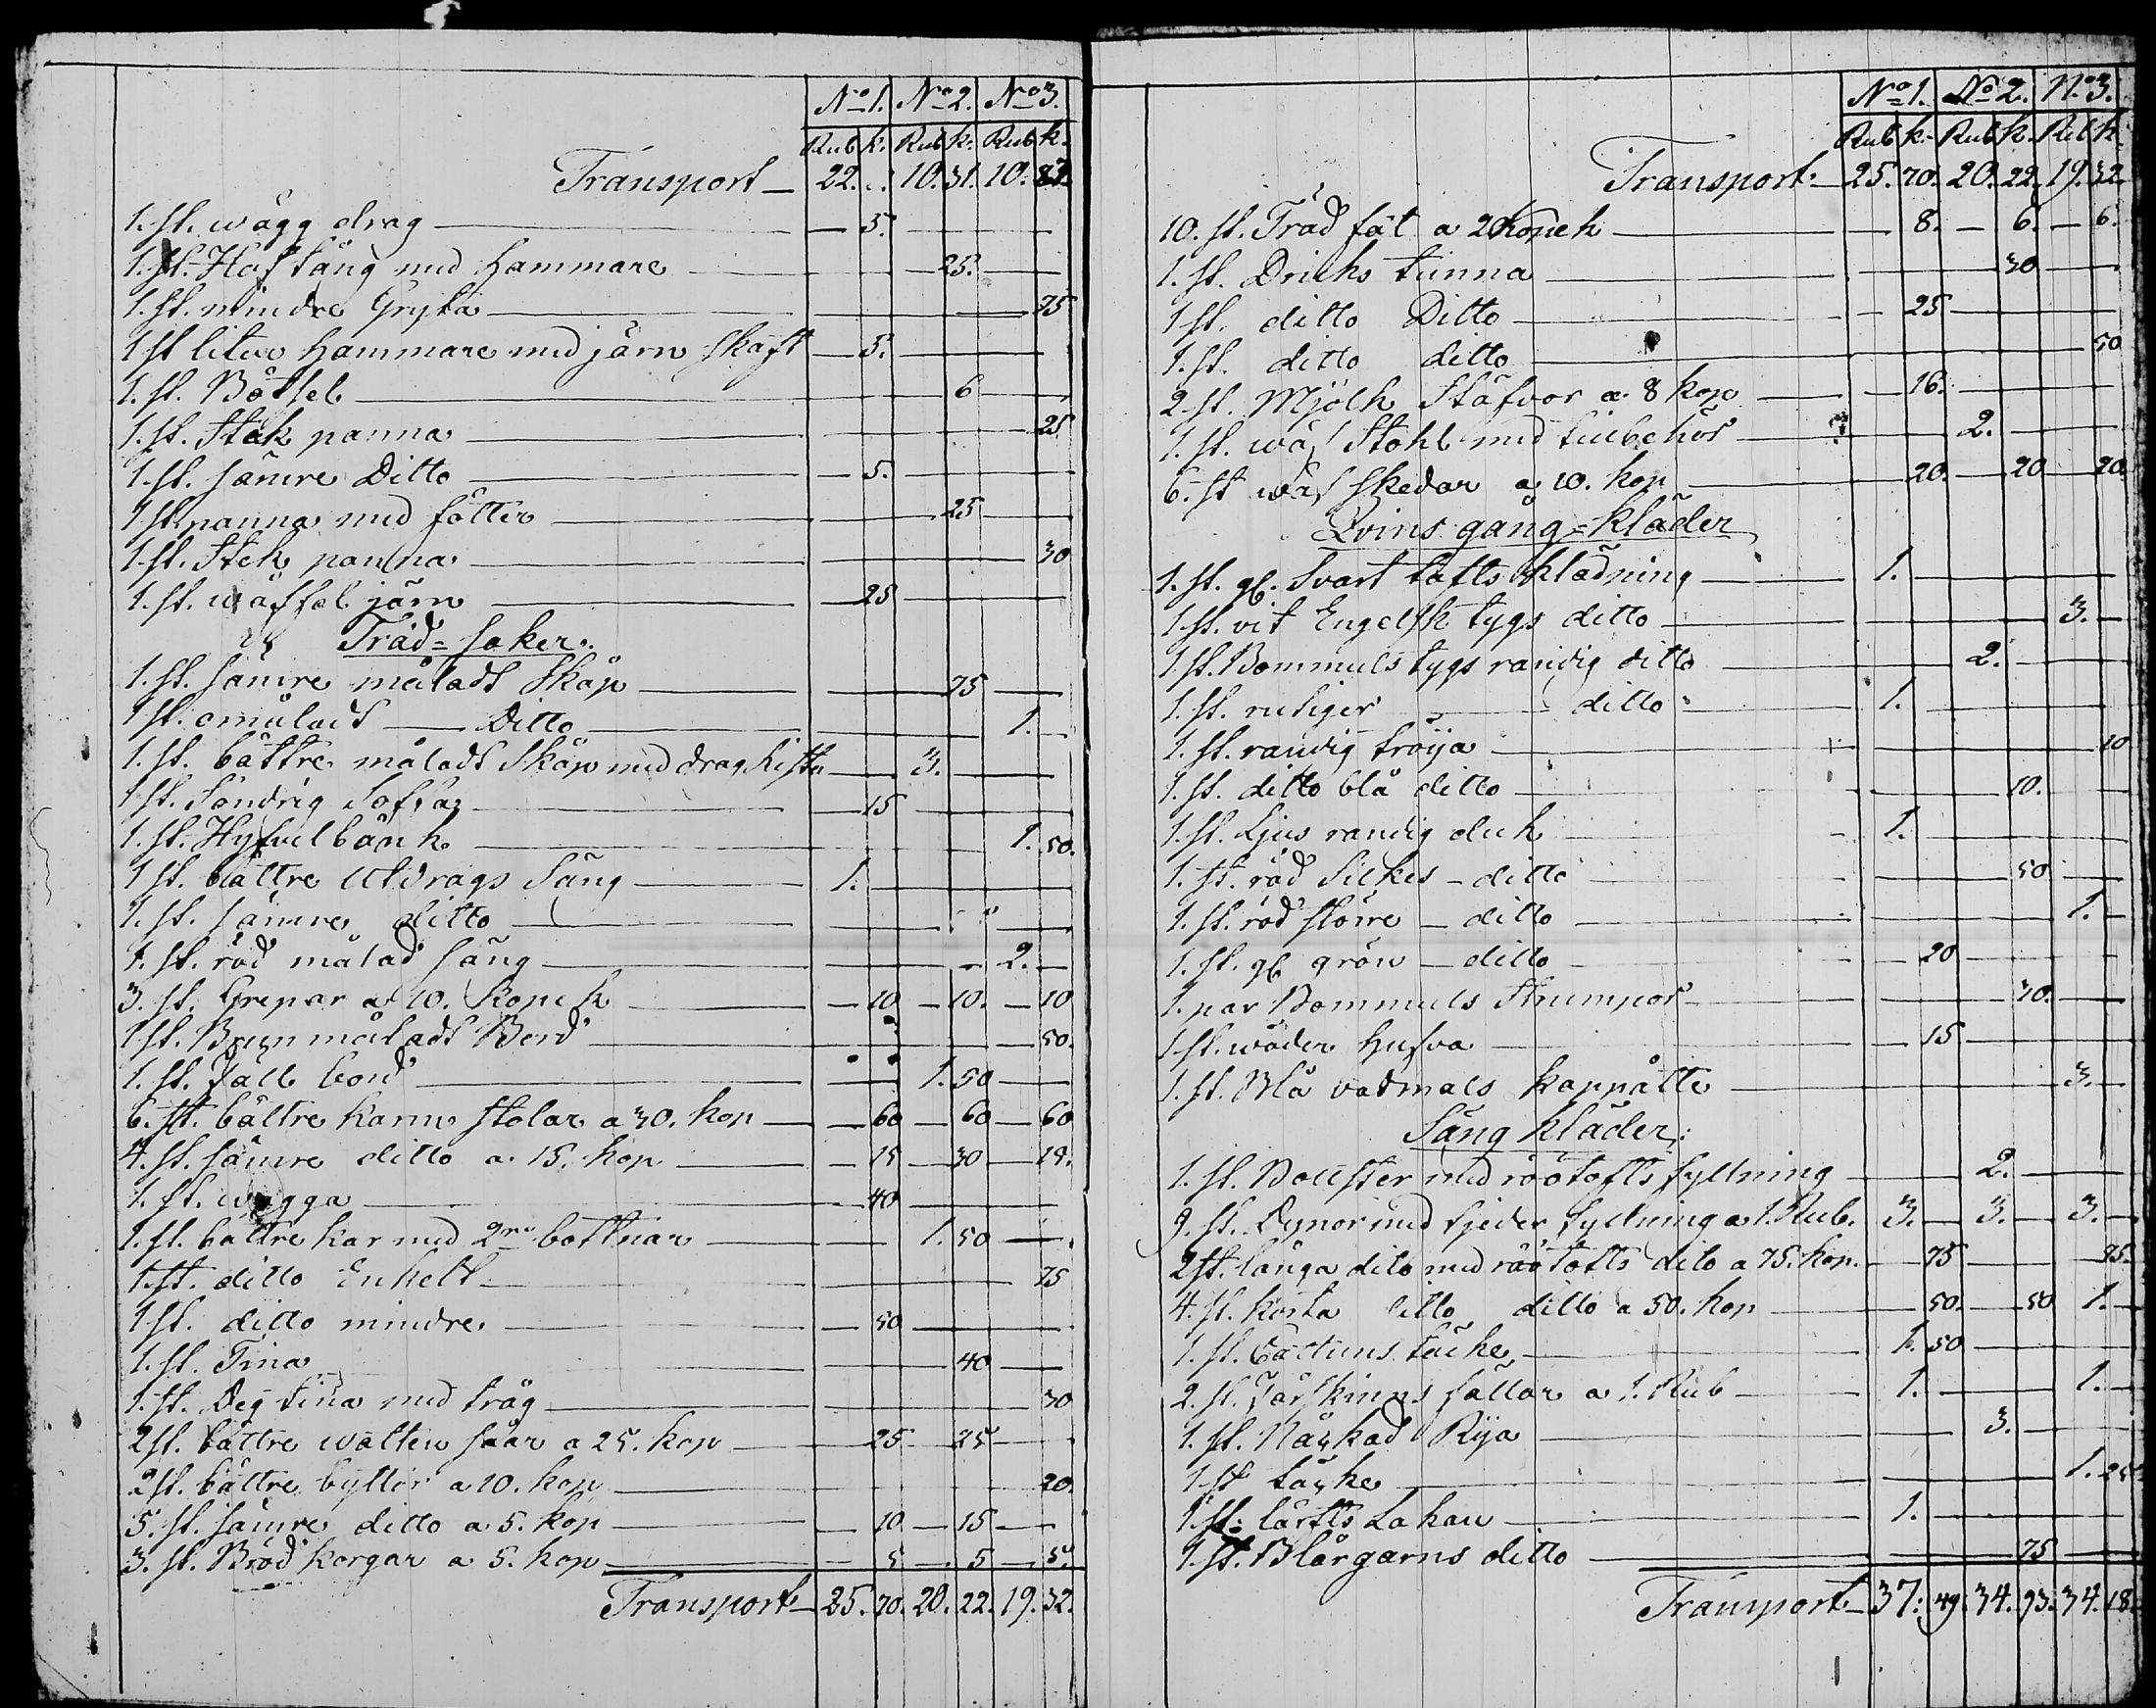 No 1. No 2. No 3.
Rub k. Rub k. Rub k.
Transport — 22. .. 10. 31. 10. 87.
1. st. wägg drag — 5.
1. st. Hof tång med hammare — 25.
1. st. mindre Gryta — 75
1 st liten hammare med järn skaft — 5.
1. st. Bötsel — 6
1. st. Stek panna — 25
1. st. sämre Ditto — 5.
1 st panna med fötter — 25
1. st. Stek panna — 30
1. st. wåffel järn — 25
Träd=saker.
1. st. sämre måladt Skåp — 75
1 st. omåladt — Ditto — 1.
1. st. båttre måladt Skåp med drag kista — 3.
1 st. Söndrig Soffa — 15
1. st. Hyfvelbänk — 1. 50.
1 st. båttre Utdrags Säng — 1.
1. st. sämre ditto — "
1. st. röd målad säng — 2.
3. st. Grepar a 10. Kopek — 10 — 10. — 10
1 st. Brun måladt Bord — 50.
1. st. fäll bord — 1. 50
6. st. båttre karm stolar a 30. kop — 60 — 60 — 60
4. st. sämre ditto a 15. kop — 15 — 30 — 15.
1. st. wagga — 40
1. st. båttre kar med 2ne bottnar — 1. 50
1. st. ditto Enkelt — 75
1 st. ditto mindre — 50
1. st. Tina — 40
1. st. Deg tina med tråg — 30
2 st. båttre watten såar a 25. kop — 25 — 25
2 st. båttre byttor a 10. kop — 20.
5. st. sämre ditto a 5. kop — 10 — 15
3. st. Bröd korgar a 5. kop — 5 — 5 — 5.
Transport — 25. 70. 20. 22. 19. 32.
No 1. No 2. No 3.
Rub k. Rub k. Rub k.
Transport — 25. 70. 20. 22. 19. 32.
10. st. Träd fat a 2 Kopek — 8. — 6. — 6.
1. st. Dricks tunna — 30
1 st. ditto Ditto — 25
1. st. ditto ditto — 50
2 st. Mjölk Stäfvor a 8 kop — 16.
1. st. wäf Stohl med tillbehör — 2.
6. st wäf skedar a 10. kop — 20. — 20 — 20.
Qvins gång=kläder
1. st. gl. Svart tafts klädning — 1.
1 st. vit Engelsk tygs ditto — 3.
1 st. Bommuls tygs randig ditto — 2.
1. st. rutiger ditto — 1.
1. st. randig tröija — 10
1. st. ditto blå ditto — 10.
1. st. Ljus randig duk — 1.
1. st. röd Silkes — ditto — 50
1. st. röd större — ditto — 1.
1. st. gl grön — ditto — 20
1. par Bommuls Strumpor — 30.
1 st. wäder hufva — 15
1. st. Blå vadmals kappåtte — 3.
Säng kläder:
1. st. Bolster med rötofts fyllning — 2.
9. st. Dynor med fjeder fyllning a 1. Rub. 3. — 3. — 3.
2 st. långa dito med rötofts dito a 75. kop. — 75 — 75.
4. st. korta ditto ditto a 50. kop — 50. — 50 1.
1. st. Cattuns täcke — 1. 50
2. st. Fårskinns fällar a 1. Rub — 1. — 1.
1. st. Näckad Rya — 3.
1 st täcke — 1. 25
1. st. lärfts Lakan — 1.
1. st. Blårgarns ditto — 75
Transport — 37. 49. 34. 93. 34. 18.